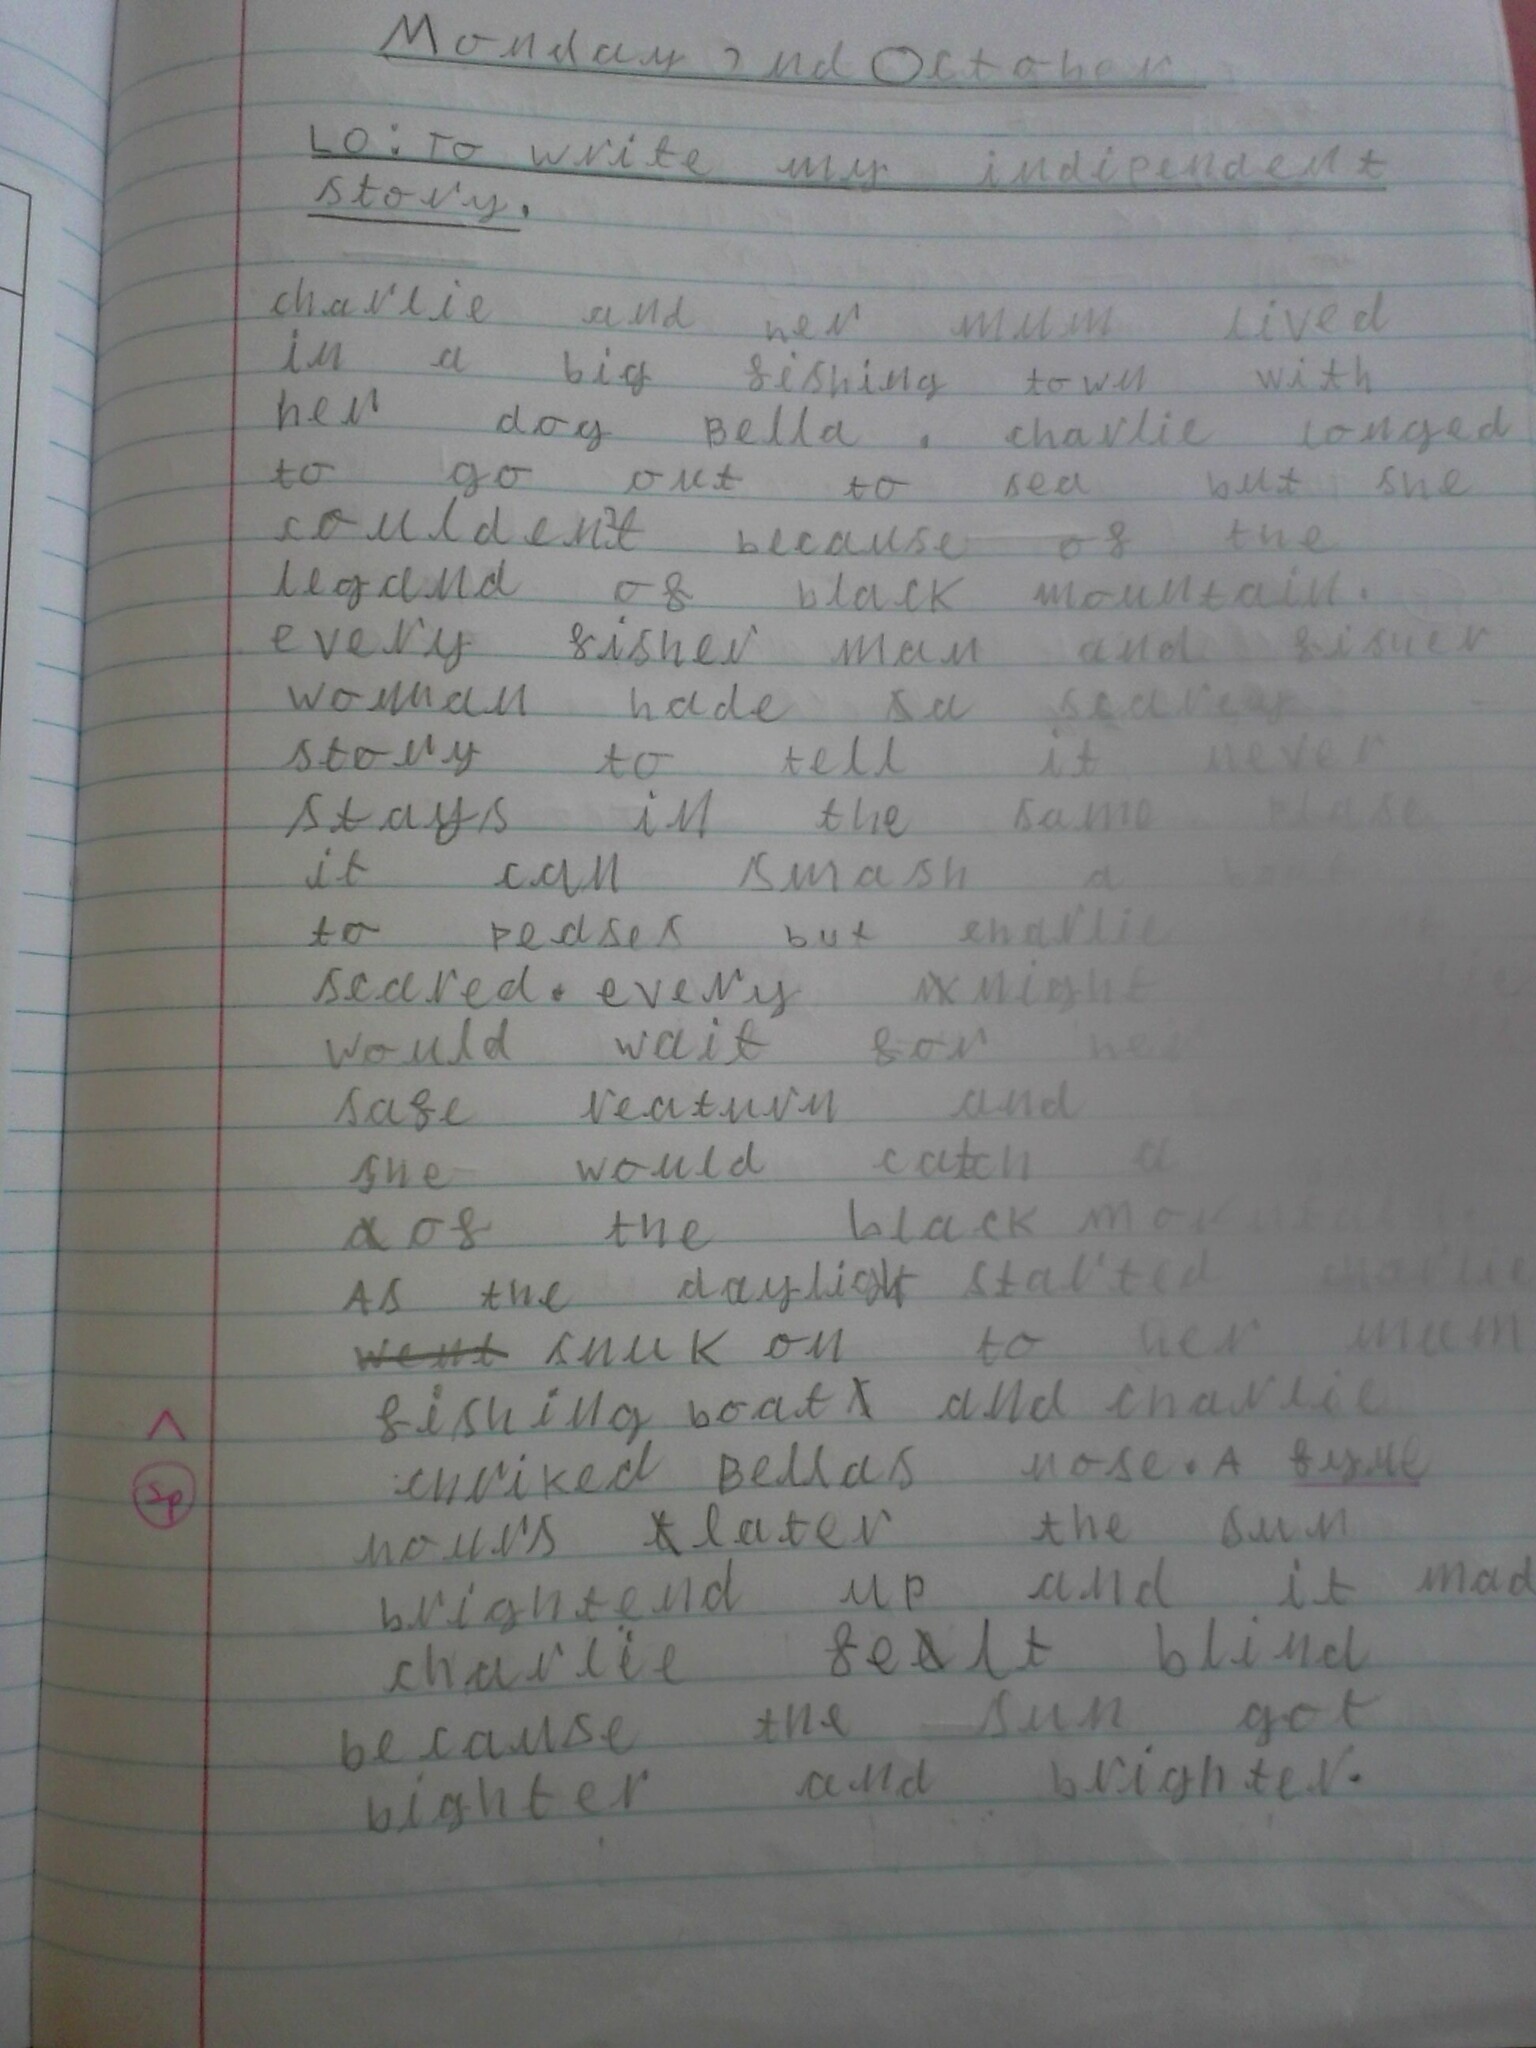 Monday 2nd October
LO: To write my indipendent
story.
charlie and her mum lived
in a big fishing town with
her dog Bella. charlie longed
to go out to sea but she
couldent because of the
legand of black mountain.
every fisher man and fisher
woman hade sa
story to tell it never
stays in the same plase
it can smash a boat
to peases but charlie
scared. every night
would wait for her
safe reaturn and
she would catch a
of the black mountain.
As the daylight started charlie
went snuk on to her mum
fishing boat and charlie
Bellas nose. A fyue
hours later the sun
brightend up and it mad
charlie fealt blind
because the sun got
bighter and brighter.
^
Sp